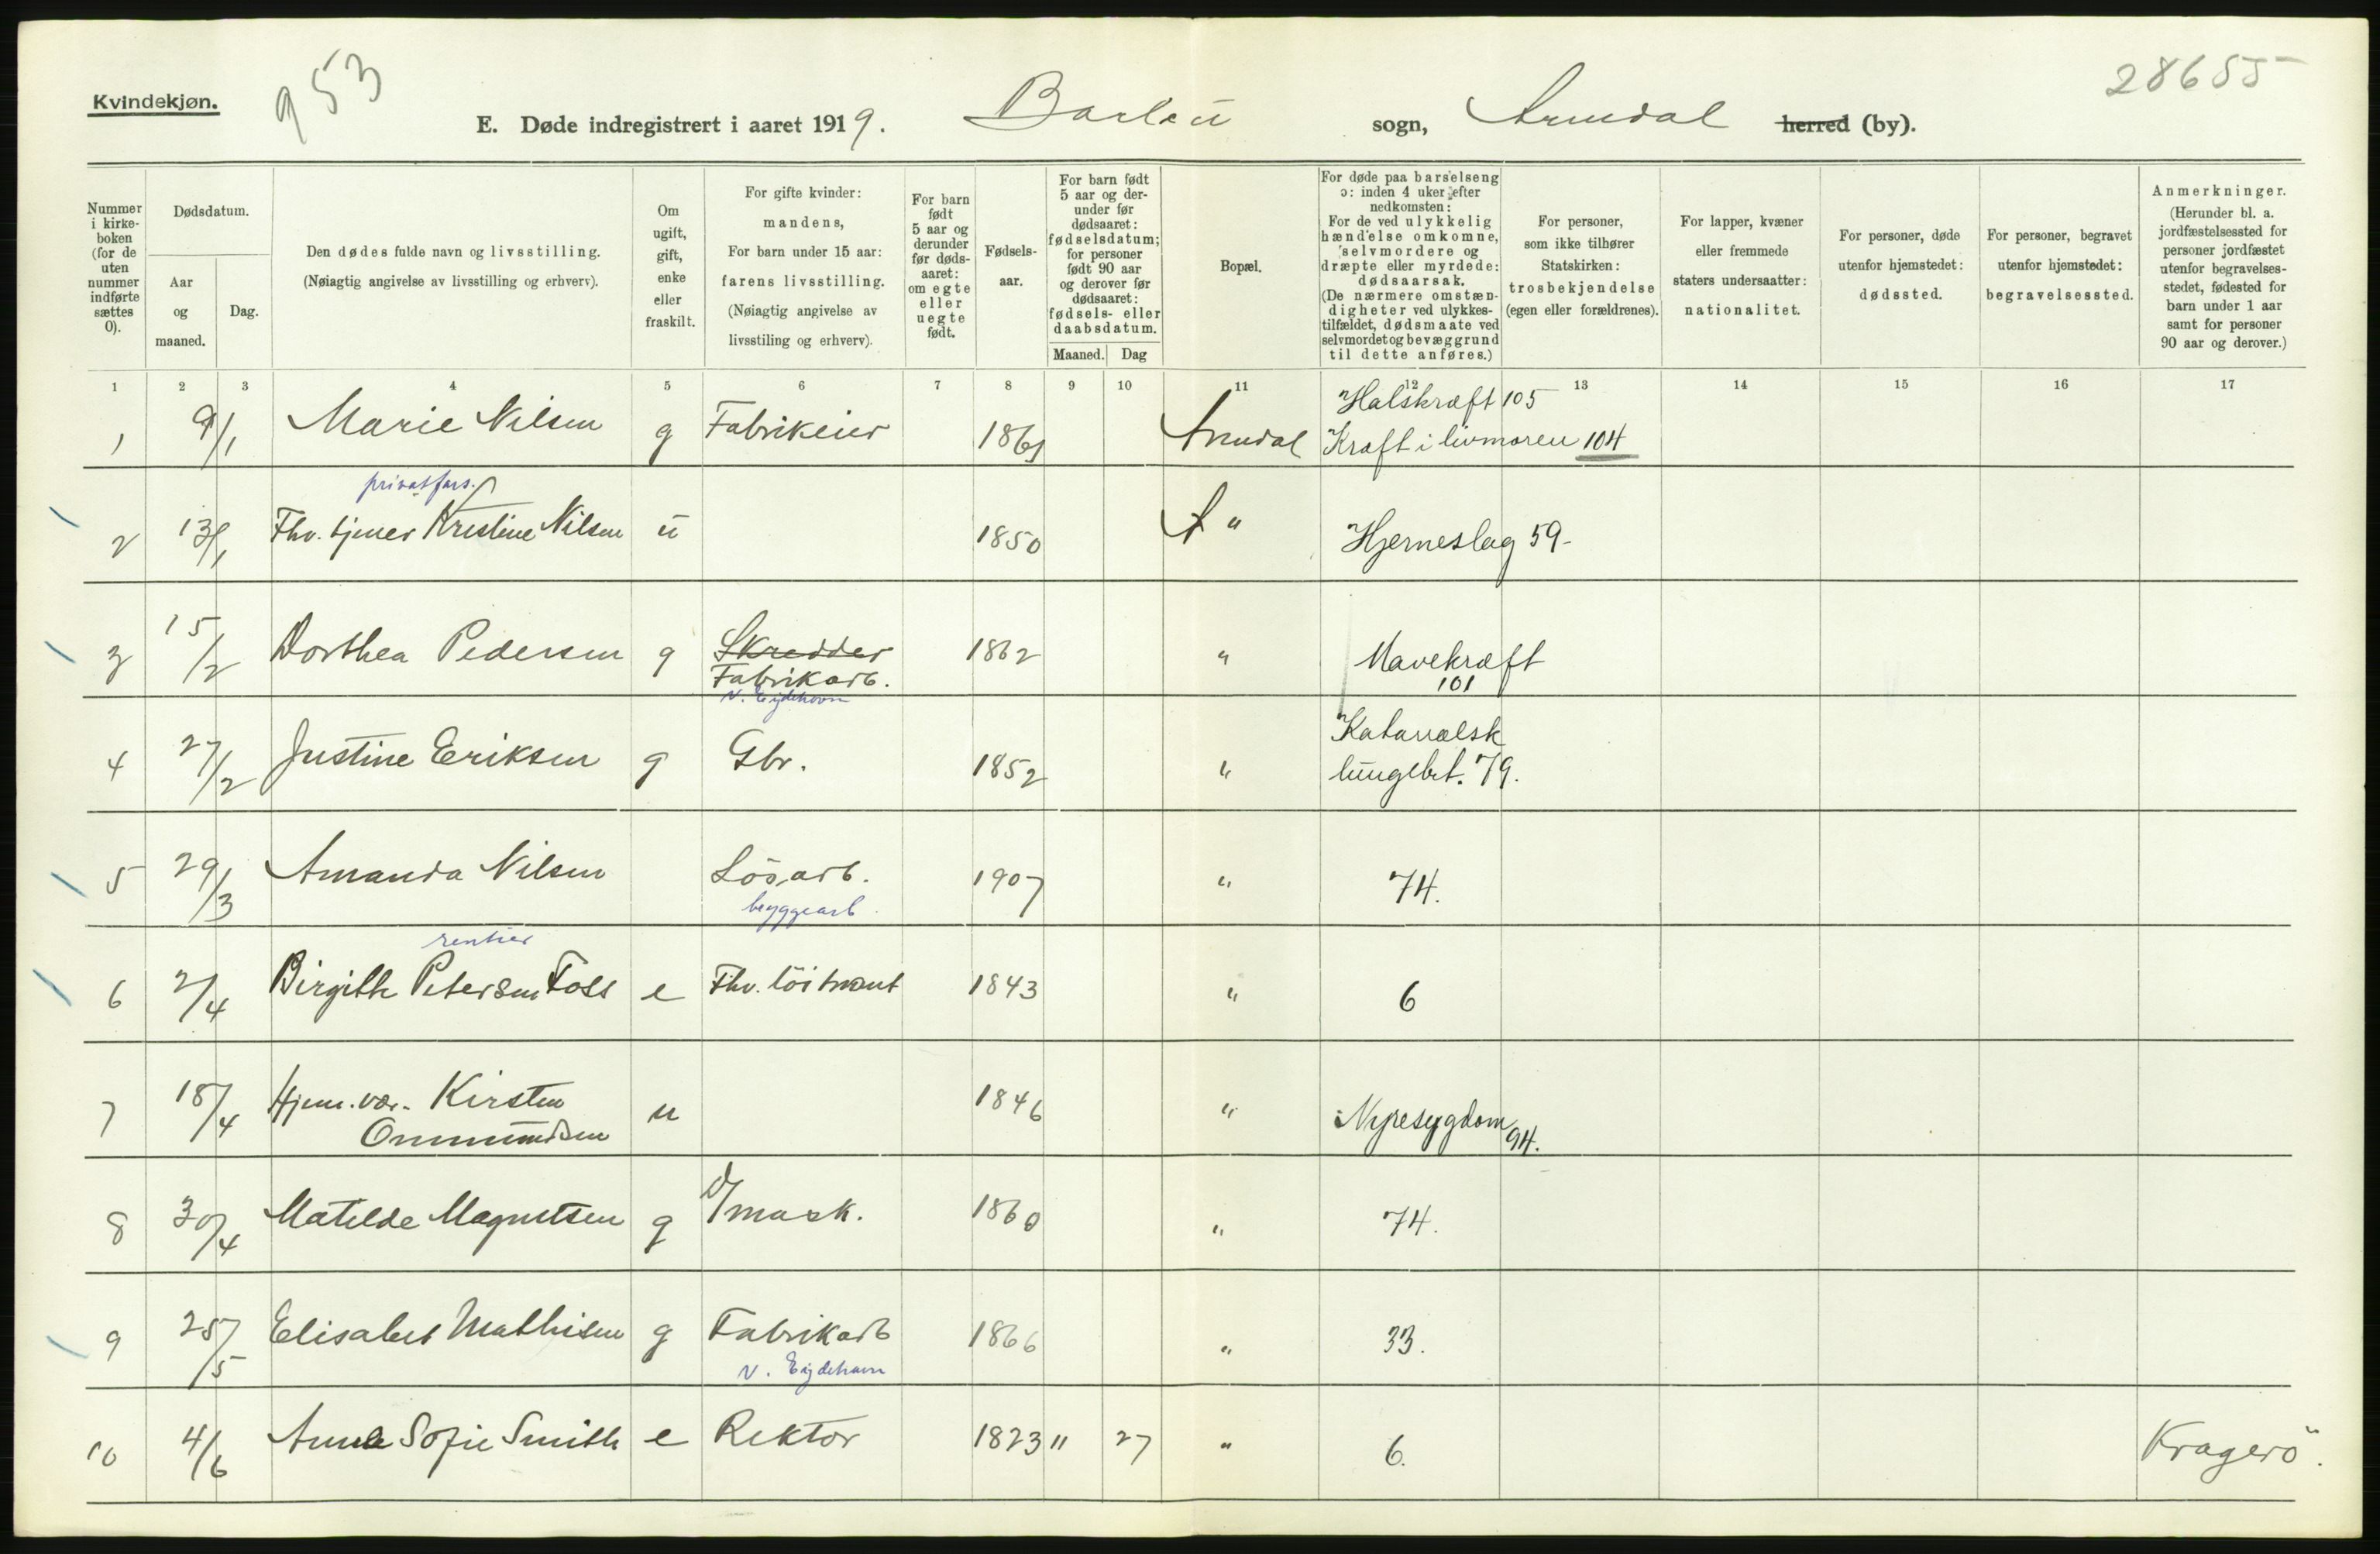 Kvindekjøn.
953
28655
E. Døde indregistrert i aaret 1919. Barbu sogn, Arendal herred (by).
Nummer i kirkeboken (for de uten nummer indførte sættes 0).
Dødsdatum.
Aar og maaned.
Dag.
Den dødes fulde navn og livsstilling.
(Nøiagtig angivelse av livsstilling og erhverv).
Om ugift, gift, enke eller fraskilt.
For gifte kvinder: mandens,
For barn under 15 aar: farens livsstilling.
(Nøiagtig angivelse av livsstiling og erhverv).
For barn født 5 aar og derunder før dødsaaret: om egte eller uegte født.
Fødselsaar.
For barn født 5 aar og derunder før dødsaaret: fødselsdatum; for personer født 90 aar og derover før dødsaaret: fødsels- eller daabsdatum.
Maaned. Dag
Bopæl.
For døde paa barselseng ɔ: inden 4 uker efter nedkomsten:
For de ved ulykkelig hændelse omkomne, selvmordere og dræpte eller myrdede: dødsaarsak.
(De nærmere omstændigheter ved ulykkestilfældet, dødsmaate ved selvmordet og bevæggrund til dette anføres.)
For personer, som ikke tilhører Statskirken: trosbekjendelse (egen eller forældrenes).
For lapper, kvæner eller fremmede staters undersaatter: nationalitet.
For personer, døde utenfor hjemstedet: dødssted.
For personer, begravet utenfor hjemstedet: begravelsessted.
Anmerkninger.
(Herunder bl. a. jordfæstelsessted for personer jordfæstet utenfor begravelsesstedet, fødested for barn under 1 aar samt for personer 90 aar og derover.)
1 2 3 4 5 6 7 8 9 10 11 12 13 14 15 16 17
Halskræft 105
1 9/1 Marie Nilsen g Fabrikeier 1861 Arendal Kræft i livmoren 104
privat fors.
2 13/1 Fhv. tjener Kristine Nilsen u 1850 A " Hjerneslag 59-
3 15/2 Dorthea Pedersen g Skredder 1862 " Mavekræft
Fabrikarb. 101
v. Eydehavn
Katarralsk
4 27/2 Justine Eriksen g Gbr. 1852 " lungebet. 79.
5 29/3 Amanda Nilsen Lösarb. 1907 " 74.
byggearb.
rentier
6 2/4 Birgitte Petersen Foss e Fhv. löitnant 1843 " 6
7 18/4 Hjem. vær. Kirsten u 1846 " Nyresygdom
Ommundsen 94.
8 30/4 Matilde Magnetsen g d/mask. 1860 " 74.
9 25/5 Elisabet Mathisen g Fabrikarb 1866 " 33.
v. Eydehavn
10 4/6 Anna Sofie Smith e Rektor 1823 11 27 " 6. Kragerö.